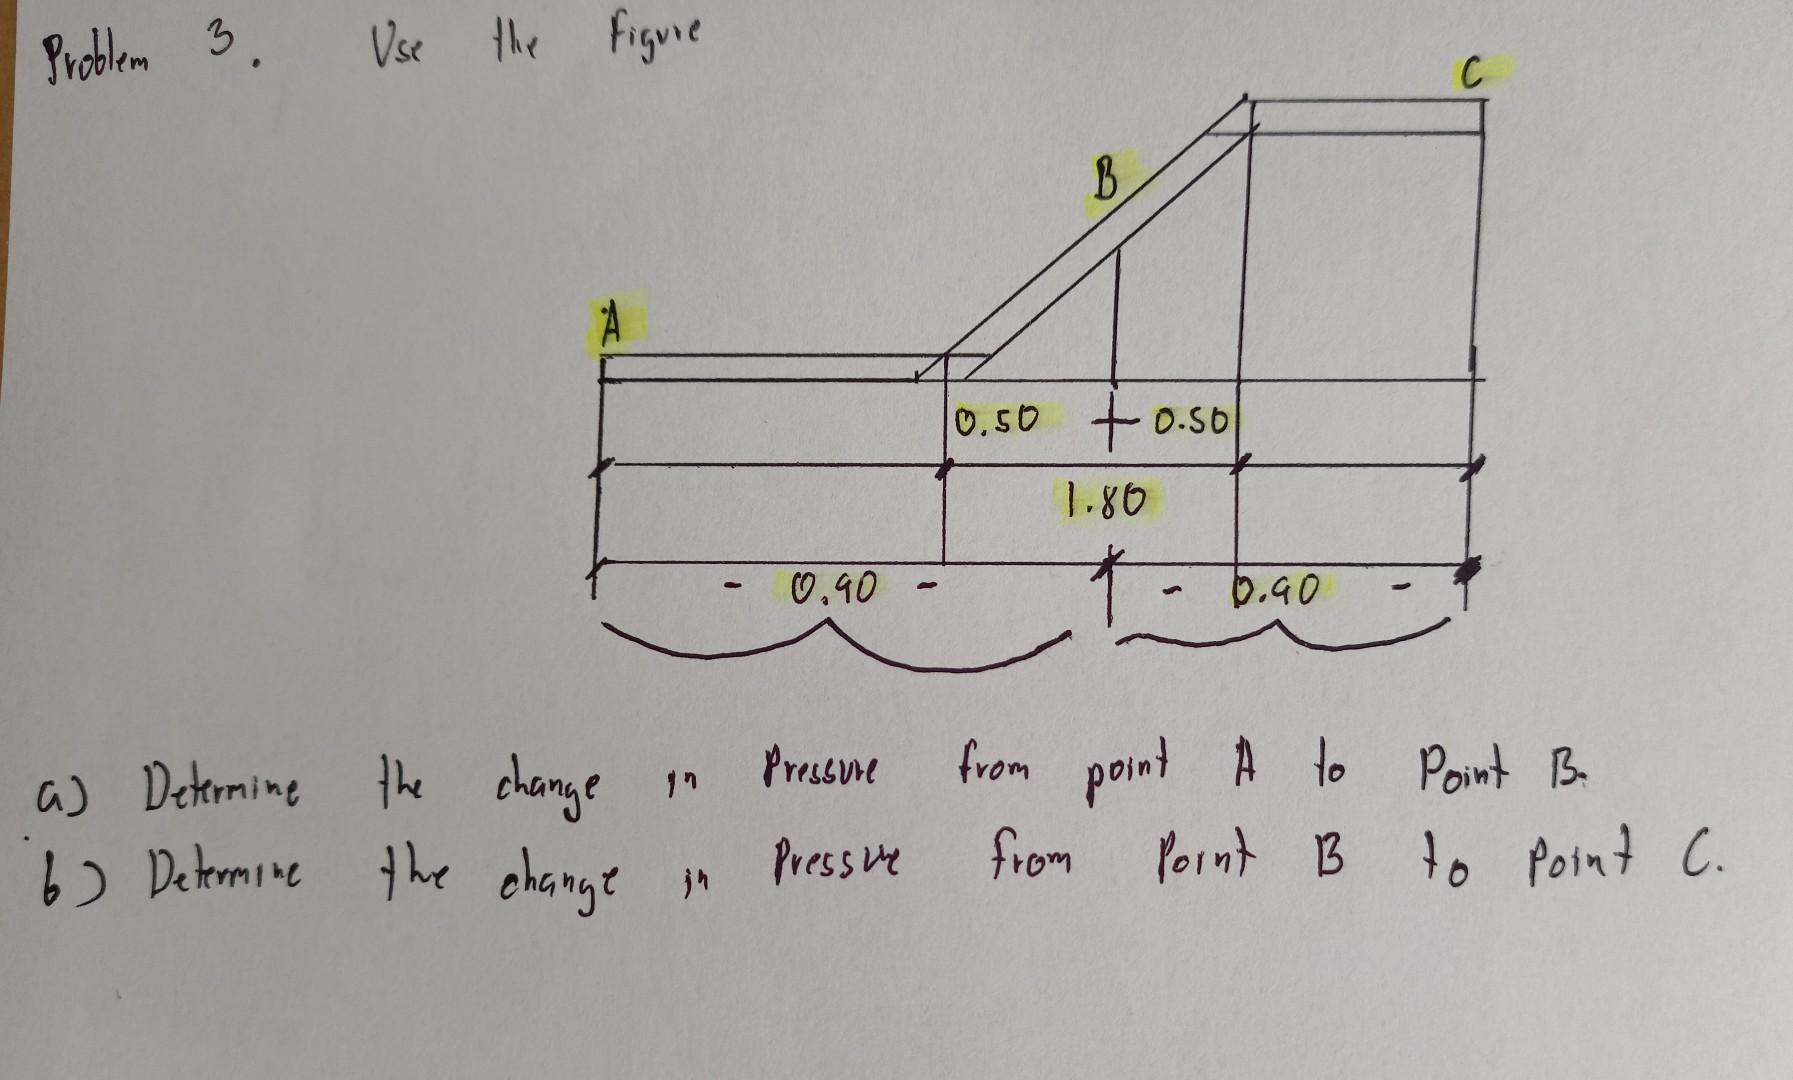 Problem 3. Use the Figure
C
B
A
0.50 + 0.50
1.80
- 0.90 - - 0.90 -
a) Determine the change in Pressure from point A to Point B.
b) Determine the change in Pressure from Point B to Point C.